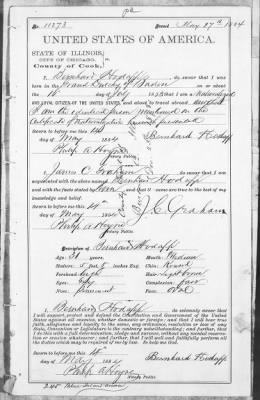 No 11573 Issued May 27th 1884
UNITED STATES OF AMERICA.
STATE OF ILLINOIS,
CITY OF CHICAGO,
County of Cook,
I, Bernhard Hodapp do swear that I was
born in Grand Duchy of Baden on
the 18 naturalized
AND LOYAL CITIZEN OF THE UNITED STATES, and about to travel abroad
I am the identical person mentioned in the
Certificate of Naturalization
Sworn to before me this 14
day of May 1884 Bernhard Hodapp
Philip A Hoyne
Notary Public
I, James C. Graham do swear that I am
acquainted with the above named Bernhard Hodapp and
with the facts stated by him and that they are true to the best of my
knowledge and belief.
Sworn to before me this 14th
day of May 1884 J. C. Graham
Philip A Hoyne
Notary Public
Description of Bernhard Hodapp
Age: 31 years. Mouth: Medium
Stature: 5 feet 5 inches Eng. Chin: Round
Forehead: high Hair: Light brown
Eyes: Complexion: fair
Nose: prominent Face: Oval
I, Bernhard Hodapp do solemnly swear that I
will support, protect and defend the Constitution and Government of the United
States against all enemies, whether domestic or foreign; and that I will bear true
faith, allegiance and loyalty to the same, any ordinance, resolution or law of any
State, Convention or Legislature to the contrary notwithstanding; and further,
that I do this with a full determination, pledge and purpose, without any mental reservation
or evasion whatsoever; and further, that I will well and faithfully perform all
the duties which may be required of me by law. So help me God.
Sworn to before me this 14
day of May 1884 Bernhard Hodapp
Philip A Hoyne
Notary Public
245 Blue Island Avenue